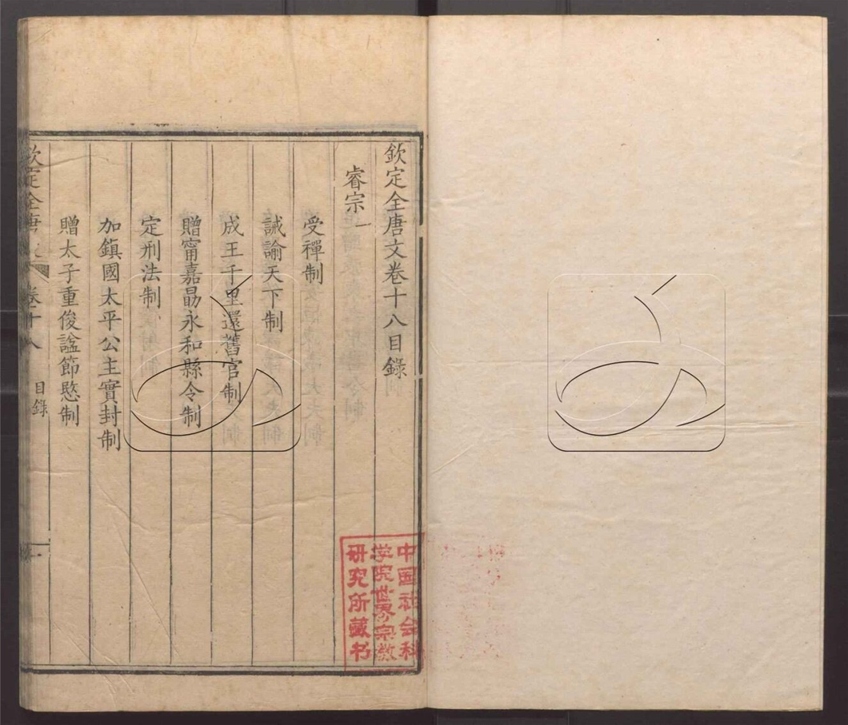 欽定全唐文卷十八目錄
睿宗一
受禪制
誡諭天下制
成王千里還舊官制
贈甯嘉勗永和縣令制
定刑法制
加鎮國太平公主實封制
贈太子重俊諡節愍制
欽定全唐文 卷十八 目錄 一
中国社会科
学院世界宗教
研究所藏书